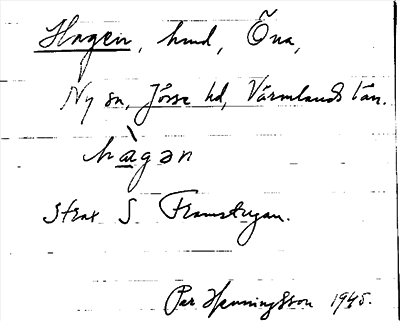 Hagen, hmd, Öna,
Ny sn, Jösse hd, Värmlands län.
hàgən
strax S Framstugan.
Per Henningsson 1945.